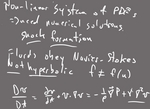 Non-linear System of PDE's
→ need numerical solutions
shock formation
Fluids obey Navier-Stokes
Not hyperbolic f ≠ f(u)